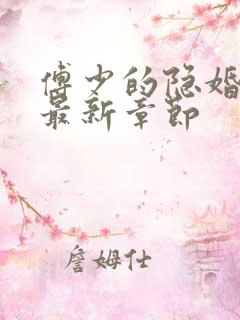 傅少的隐婚
最新章节
詹姆仕